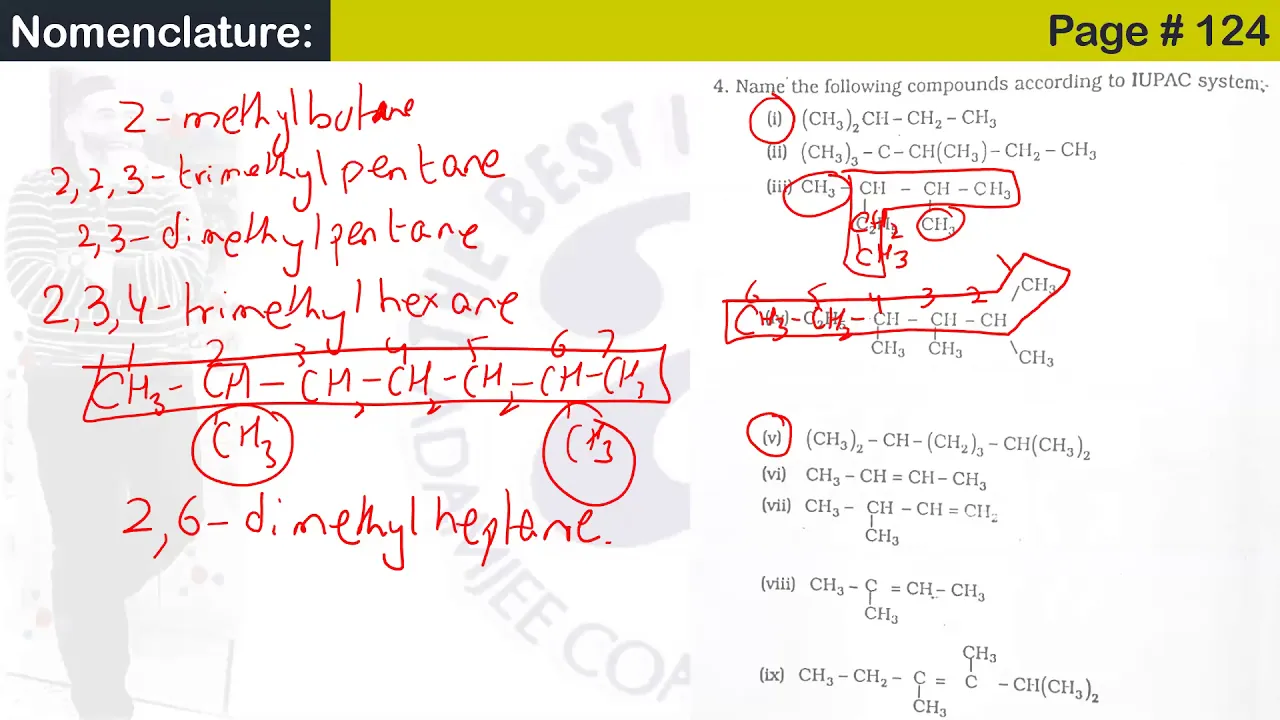 Nomenclature:
Page # 124
2-methylbutane
2,2,3-trimethylpentane
2,3-dimethylpentane
2,3,4-trimethylhexane
1 2 3 4 5 6 7
CH3 - CH - CH2 - CH2 - CH2 - CH - CH3
CH3 CH3
2,6-dimethylheptane.
4. Name the following compounds according to IUPAC system;-
(i) (CH₃)₂CH – CH₂ – CH₃
(ii) (CH₃)₃ – C – CH(CH₃) – CH₂ – CH₃
(iii) CH₃ – CH – CH – CH₃
C₂H₅ CH₃
CH2
CH3
CH₃
6 5 4 3 2
(iv) C₂H₅ – CH – CH – CH
CH3 - CH2 -
CH₃ CH₃ CH₃
(v) (CH₃)₂ – CH – (CH₂)₃ – CH(CH₃)₂
(vi) CH₃ – CH = CH – CH₃
(vii) CH₃ – CH – CH = CH₂
CH₃
(viii) CH₃ – C = CH – CH₃
CH₃
CH₃
(ix) CH₃ – CH₂ – C = C – CH(CH₃)₂
CH₃
THE BEST I
ADAMJEE COA